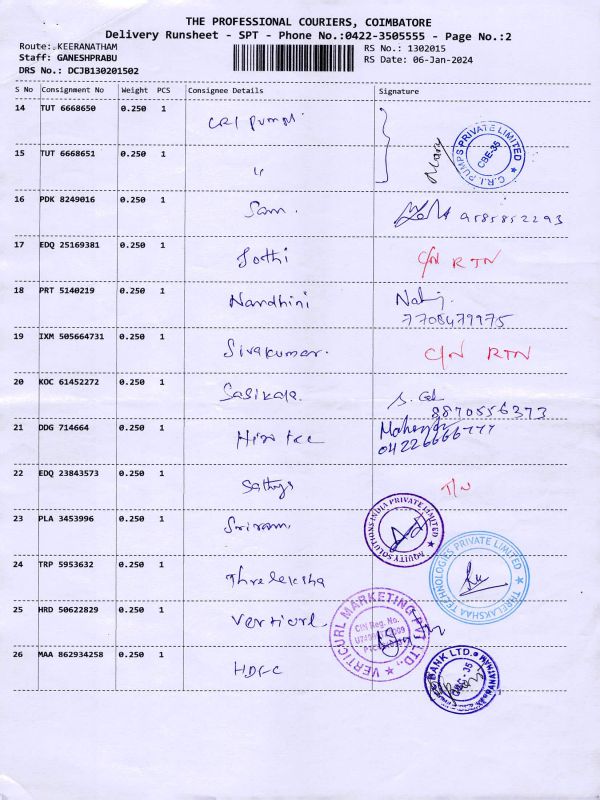 THE PROFESSIONAL COURIERS, COIMBATORE
Delivery Runsheet - SPT - Phone No.:0422-3505555 - Page No.:2
Route: KEERANATHAM
RS No.: 1302015
Staff: GANESHPRABU
RS Date: 06-Jan-2024
DRS No.: DCJB130201502
S No Consignment No Weight PCS Consignee Details Signature
14 TUT 6668650 0.250 1 CRI pumps.
15 TUT 6668651 0.250 1 "
C.R.I. PUMPS PRIVATE LIMITED
CBE-35
16 PDK 8249016 0.250 1 Sam. 9585852293
17 EDQ 25169381 0.250 1 Jothi C/N RTN
18 PRT 5140219 0.250 1 Nandhini
7708479975
19 IXM 505664731 0.250 1 Sivakumar. C/N RTN
20 KOC 61452272 0.250 1 Sasikala.
8870556373
21 DDG 714664 0.250 1
22 EDQ 23843573 0.250 1 Sathya
23 PLA 3453996 0.250 1 Sriram
AQUITY SOLUTIONS INDIA PRIVATE LIMITED
24 TRP 5953632 0.250 1 Threleksha
THRELAKSHAA TECHNOLOGIES PRIVATE LIMITED
25 HRD 50622829 0.250 1 Verticurl.
VERTICURL MARKETING PVT. LTD.
CIN Reg. No.
26 MAA 862934258 0.250 1 HDFC
BANK LTD.